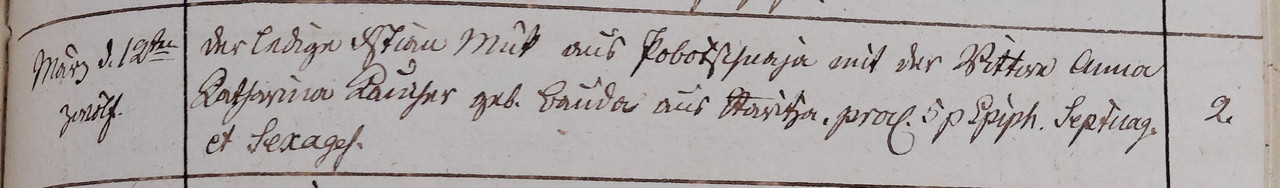 März d. 12ten
zwölf.
der ledige Xstian Muth aus Pobotschnaja mit der Wittwe Anna
Katharina Rauscher geb. Bauda aus Staritza. procl. 5 p Epiph. Septuag.
et Sexages.
2.